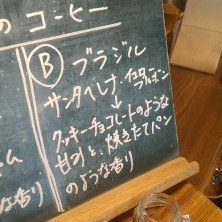 のコーヒー
Ⓑ ブラジル
サンタべレナ・イエローブルボン
↓
クッキーチョコレートのような
甘さと、焼きたてパン
のような香り
ム
な香り